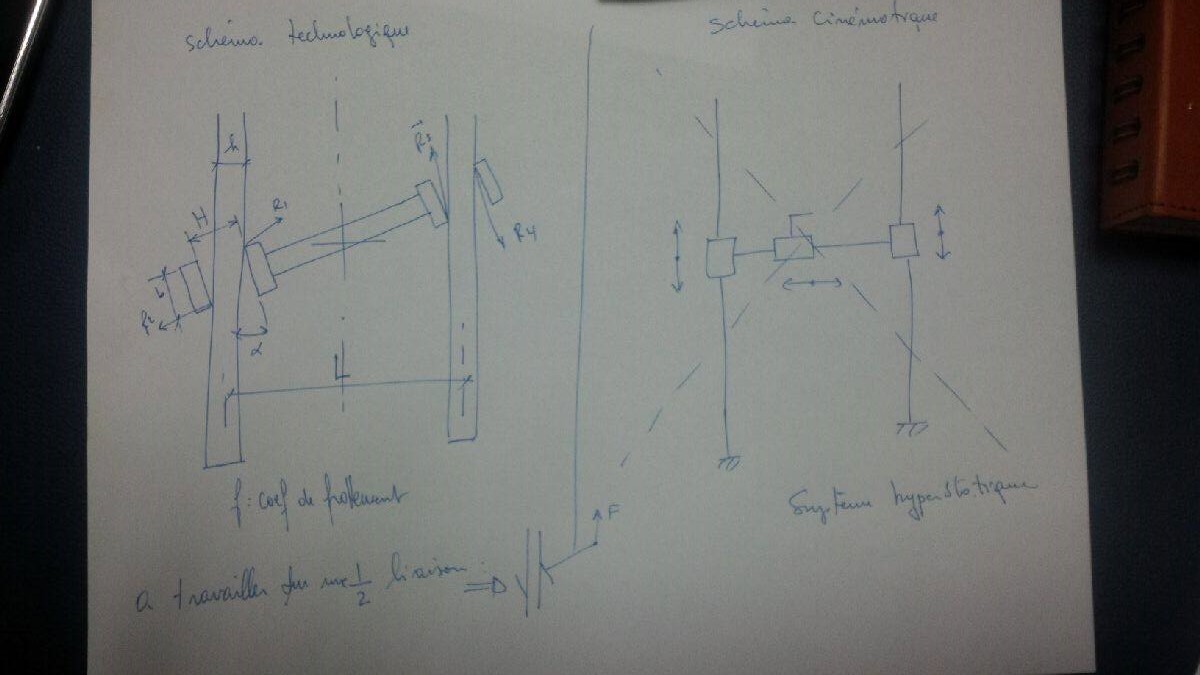 schéma technologique
Schéma Cinématique
h
R3
H
R1
R4
b
R2
α
L
f: coef de frottement
Système hyperstatique
F
a travailler sur une 1/2 liaison :